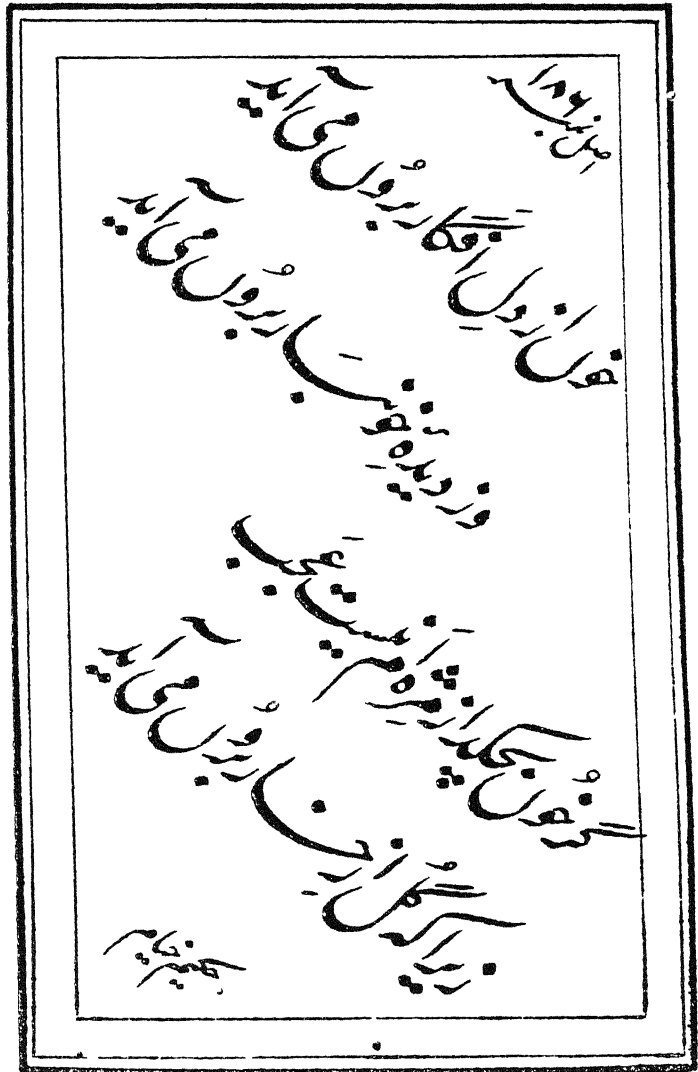 اصل نمبر ۱۸۶
خوں از دلِ افگار برُوں می آید
وز دیدۂ خونبار برُوں می آید
گر خُوں بچکد از مژہ اَم نیست عَجب
زیرا کہ گُل از خار برُوں می آید
حکیم خیام